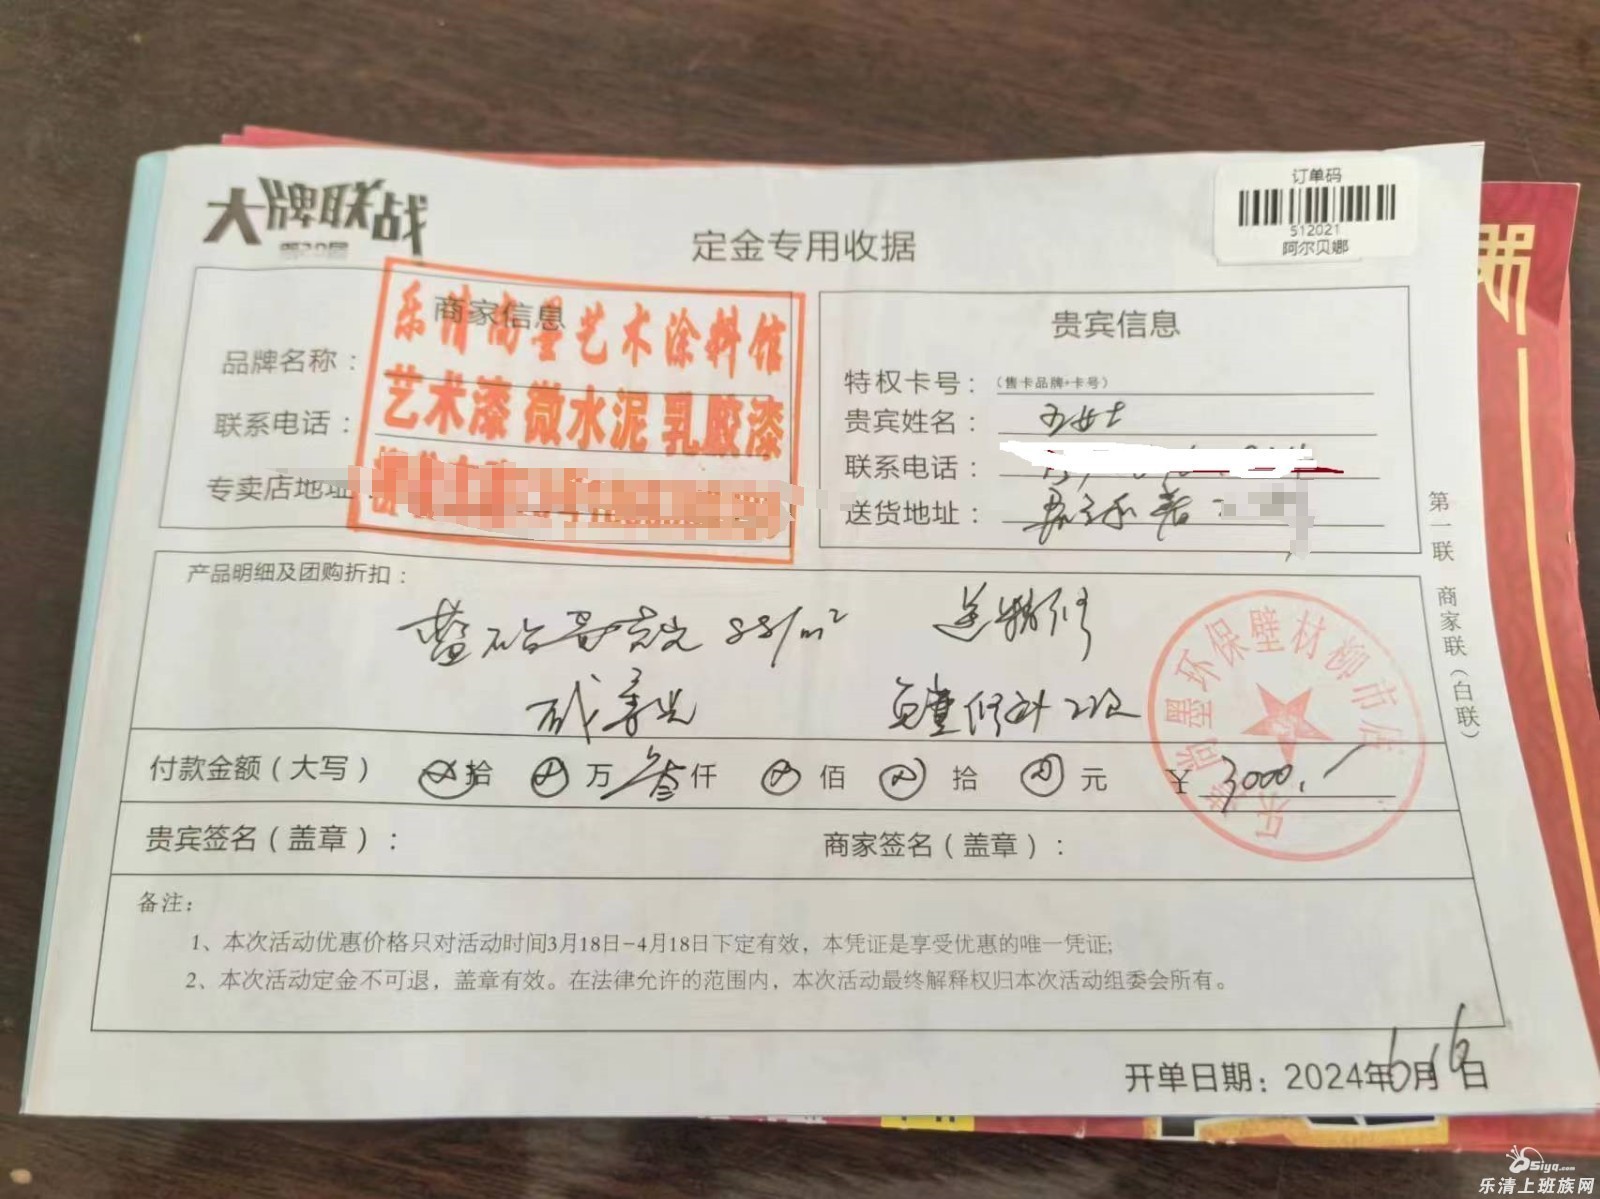 大牌联战
订单码
512021
阿尔贝娜
定金专用收据
商家信息
品牌名称：
联系电话：
专卖店地址：
乐清尚墨艺术涂料馆
艺术漆 微水泥 乳胶漆
贵宾信息
特权卡号：（售卡品牌+卡号）
贵宾姓名： 女士
联系电话：
送货地址：
第一联 商家联（白联）
产品明细及团购折扣：
88/m² 送精修
免费修补2次
乐清尚墨环保壁材柳市店
付款金额（大写） 拾 万 叁仟 佰 拾 元 ¥ 3000.
贵宾签名（盖章）：
商家签名（盖章）：
备注：
1、本次活动优惠价格只对活动时间3月18日-4月18日下定有效，本凭证是享受优惠的唯一凭证;
2、本次活动定金不可退，盖章有效。在法律允许的范围内，本次活动最终解释权归本次活动组委会所有。
开单日期：2024年6月16日
0Siyq.com
乐清上班族网